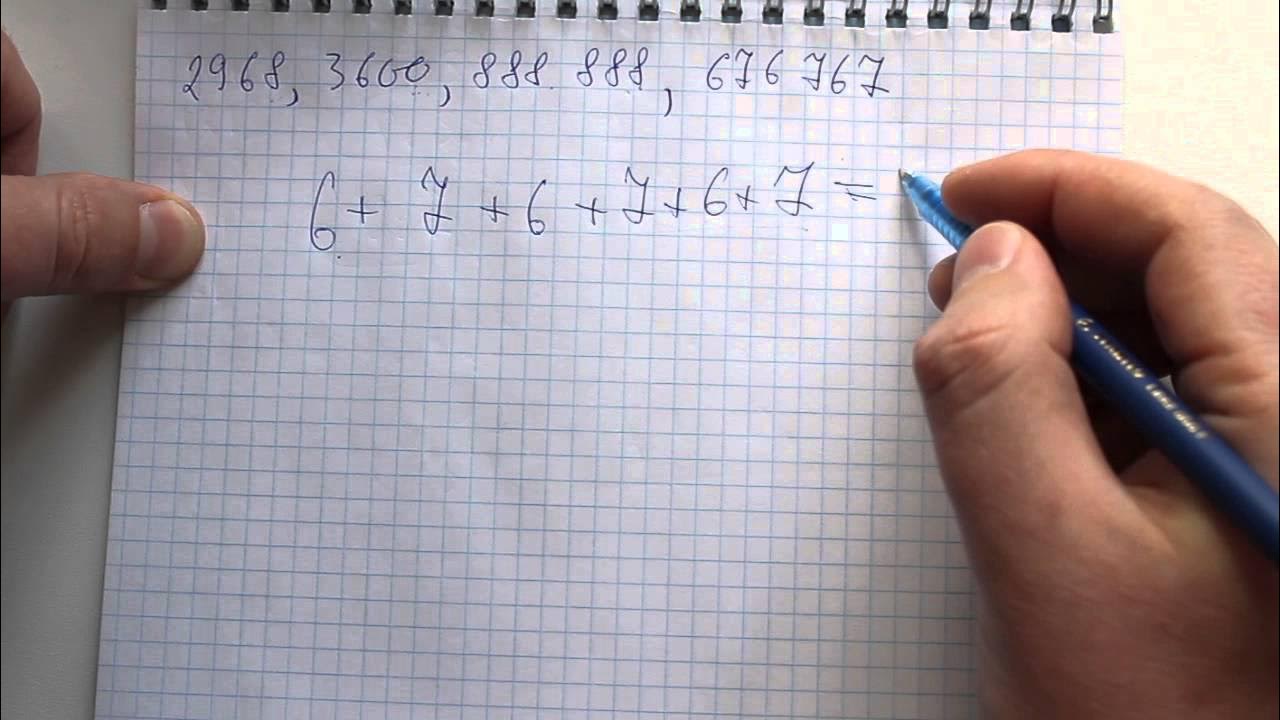 2968, 3600, 888 888, 676 767
6 + 7 + 6 + 7 + 6 + 7 =